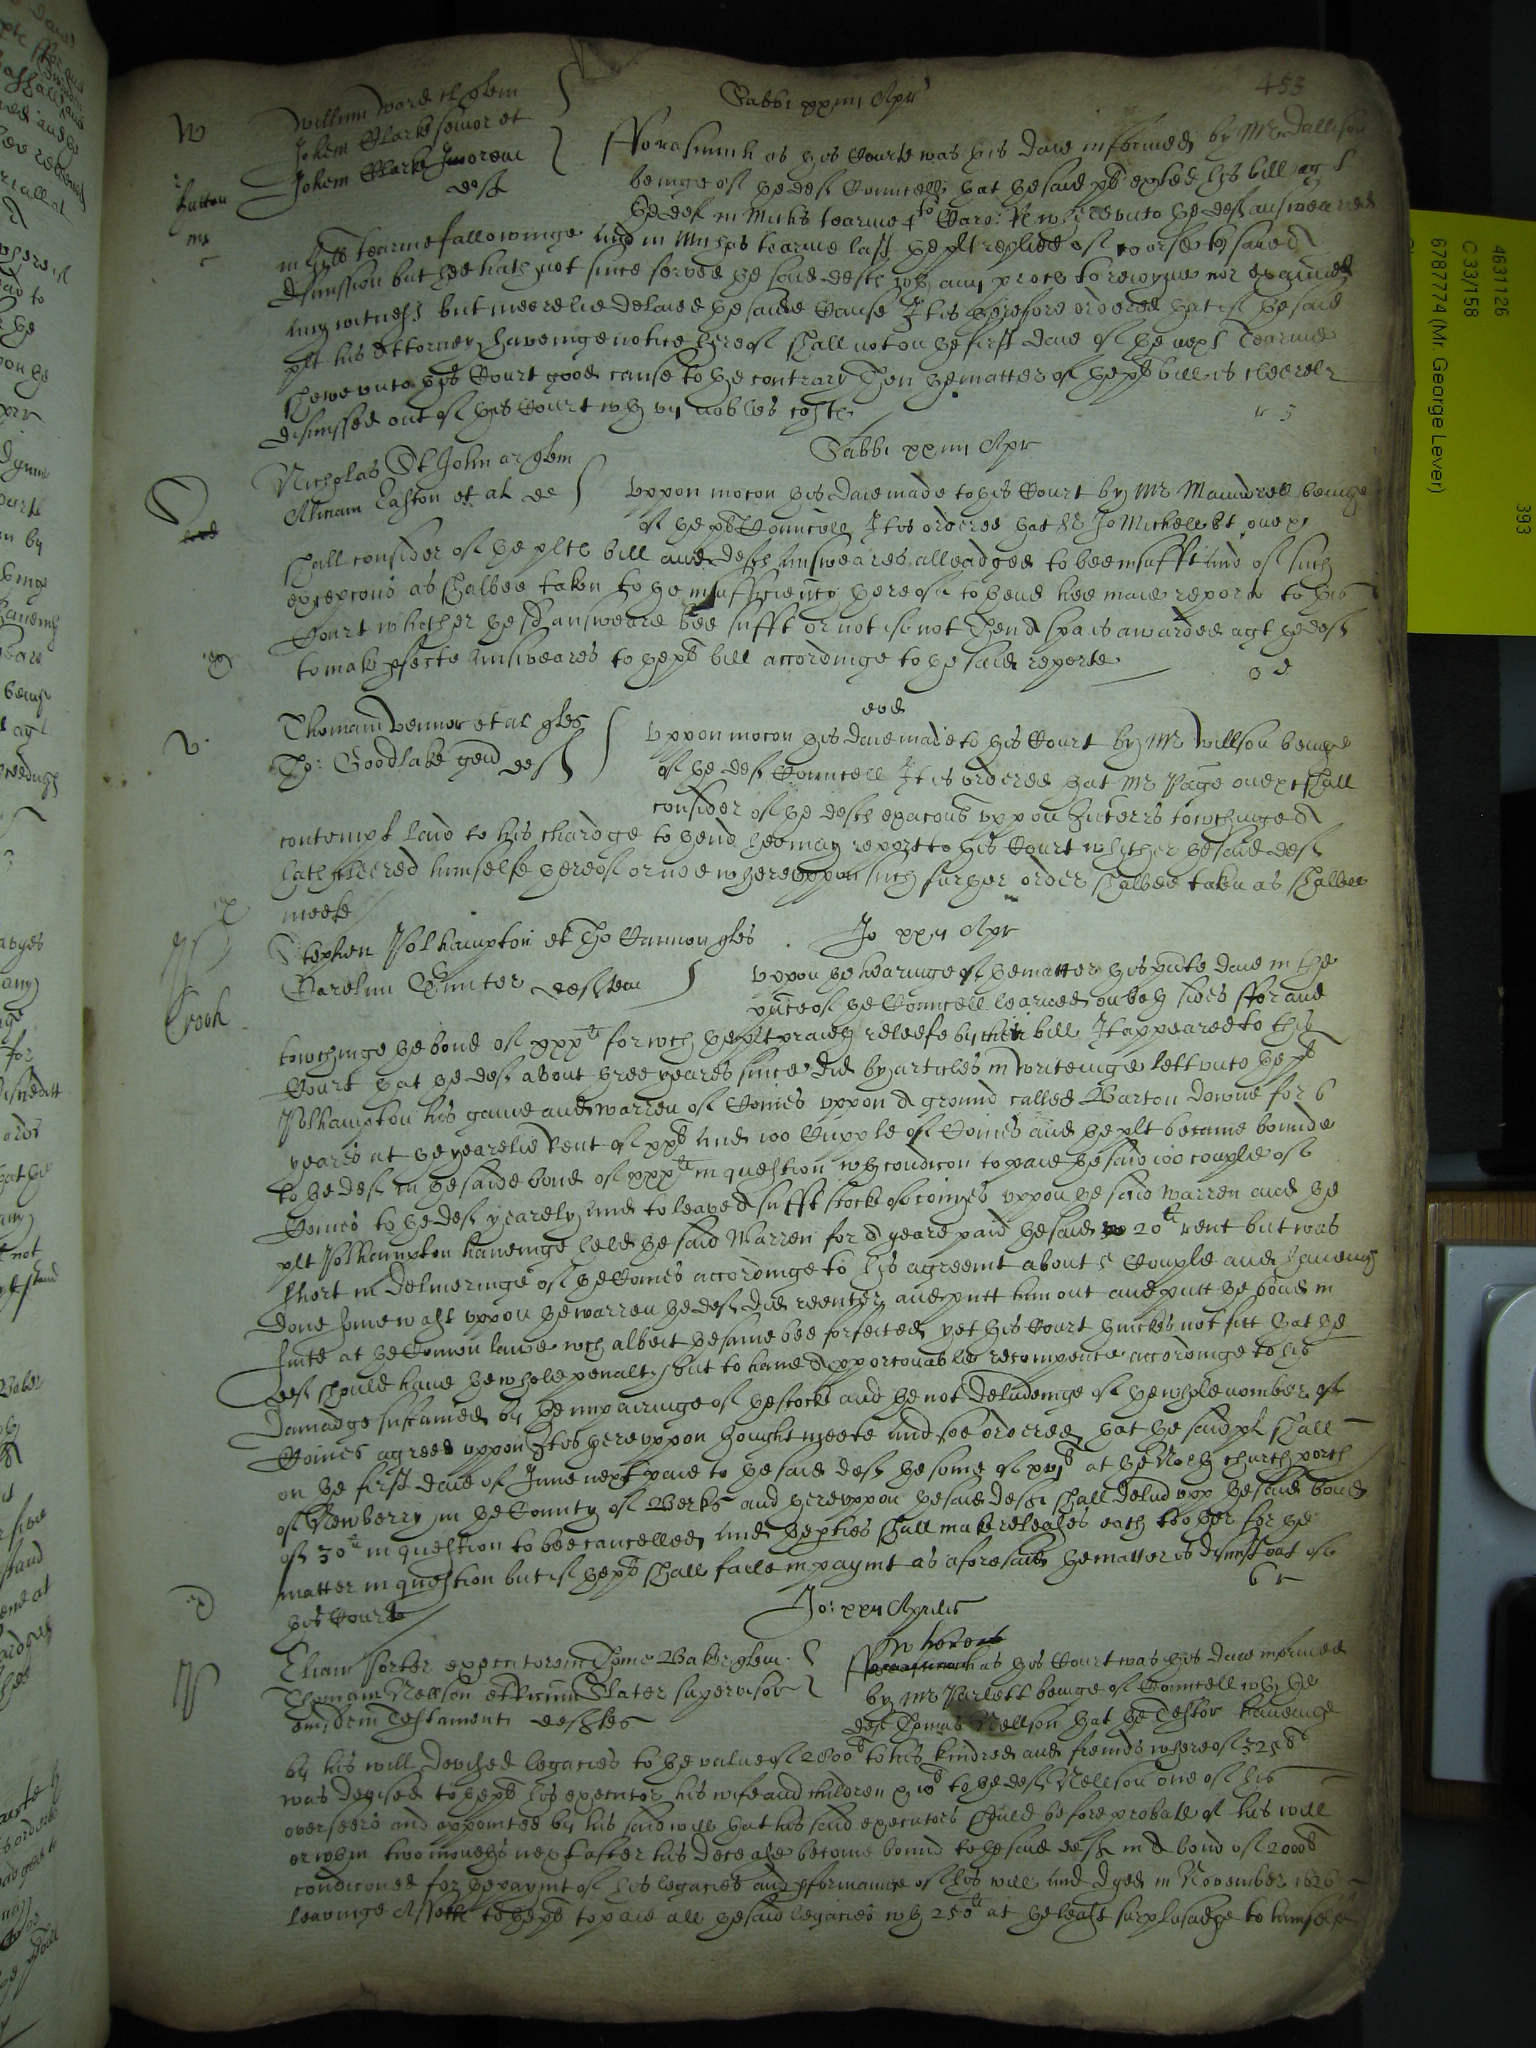 453
Sabbi xxiiii Apr
W
Willimu Word quer
Johem Clarke senior et
Johem Clarke Juniorem
deft
Sutton
mr
fforasmuch as this Courte was this daie informed by Mr Dallison
beinge of the def Councell that the said plt exhited his bill agt
the def in Michis tearme 4to Caro: R whereunto the deft answeared
in Hill tearme followinge And in Michas tearme last the plt replied of course to save a
dismission but hee hath not since served the said defts wth any proces to reioyne nor examined
any witness but meerelie delaied the saide Cause It is therefore ordered that if the said
plt his Attorney haveinge notice hereof shall not on the first daie of the next Tearme
shewe unto this Court good cause to the contrary Then the matter of the plt bill is cleerely
dismissed out of this Court wth vi nobles costs
Sabbi xxiiii Apr
Nicholas St John ar quer
Miriam Easton et al def
Uppon mocon this daie made to this Court by Mr Maundrell beinge
of the plts Councell It is ordered that Sr Jo Michell kt one etc
shall consider of the plts bill and defts Answeares alleadged to bee insufft And of such
excepcons as shalbee taken to the insufficiency thereof to thend hee maie reporte to this
Court whether the sd answeare bee sufft or not if not Then a spa is awarded agt the defts
to make pfecte Answeares to the plts bill accordinge to the said reporte
eod
V
Thomam Vennor et al ques
Tho: Goodlake gen def
Uppon mocon this daie made to this Court by Mr Willson beinge
of the def Councell It is ordered that Mr Page one etc shall
consider of the defts exacons uppon Interrs towchinge a
contempt laid to his chardge to thend hee may report to this Court whether the said deft
hath cleered himselfe thereof or noe whereuppon such further order shalbee taken as shalbee
meete
Jo xxii Apr
Stephen Polhampton et Tho Cannon ques
Carolum Gunter defendtem
Crooh
Uppon the hearinge of the matter this psente daie in the
psnce of the Councell learned on both sides ffor and
towchinge the bond of xxxli for wch the plt praieth releefe by their bill It appeared to this
Court that the deft about three yeares since did by articles in writeinge lett unto the plt
Polhampton his game and warren of Conies uppon a ground called Barton Downe for 6
yeares at the yearelie rent of xxli And 100 Cupple of Conies and the plt became bounde
to the def in the saide bond of xxxli in question wth condicon to paie the said 100 couple of
Conies to the deft yearely And to leave a sufft stocke of conyes uppon the said warren and the
plt Polhampton haveinge held the said Warren for a yeare paid the said 20li rent but was
short in deliveringe of the Conies accordinge to his agreemt about Couple and haveing
done some wast uppon the warren the deft did reenter and putt him out and putt the bond in
suite at the Comon lawe wch albeit the same bee forfeited yet this Court thinckes not fitt that the
deft should have the whole penalty but to have a pporconable recompence accordinge to his
Damadge sustained by the impairinge of the stocke and the not deliveringe of the whole number of
Conies agreed uppon It is thereuppon thought meete And soe ordered that the said plt shall
on the first daie of June next paie to the said deft the some of at the North church porch
of Newberry in the County of Berks and thereuppon the said deft shall deliv upp the said bond
of 30li in question to bee cancelled And the pties shall make releases each to other for the
matter in question but if the plt shall faile in paymt as aforesaid the matter is dismist out of
this Courte
Jo: xxii Aprilis
Eliam Porter executorem Thome Baker quer
Thomam Nellson et Slater supervisor
eiusdem Testamenti defts
Whereas
fforasmuch as this Court was this daie informed
by Mr Parlett beinge of Councell wth the
deft Thomas Nellson that the Testor haveinge
by his will devised legacies to the value of 2800li to his kindred and freinds whereof 325li
was devised to the plt his executor his wife and children & to the deft Nellson one of his
overseers and appointed by his said will that his said executors should before probate of his will
or wthin two moneths next after his decease become bound to the said defts in a bond of 2000li
condiconed for the paymt of his legacies and pformance of his will And dyed in November 1626
leavinge Assetts to the plt to paie all the said legacies wth 250li at the least surplusadge to himselfe
4631126
C 33/158
6787774 (Mr. George Lever)
393